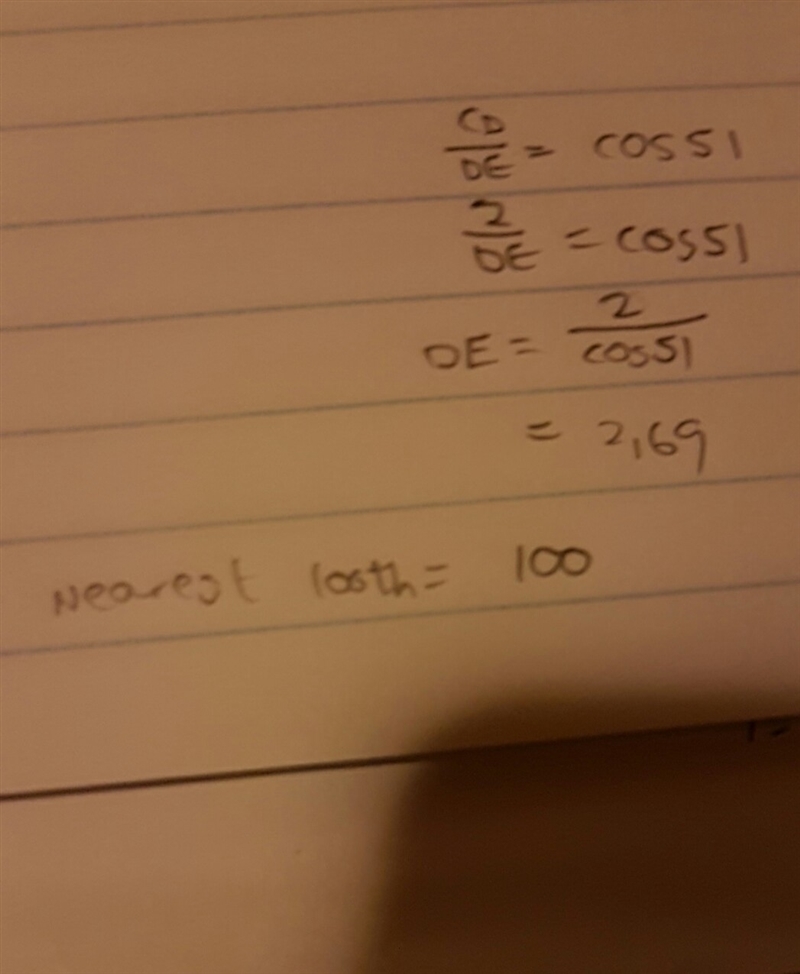 CD/DE = cos51
2/DE = cos51
DE = 2/cos51
= 2,69
Nearest 100th = 100